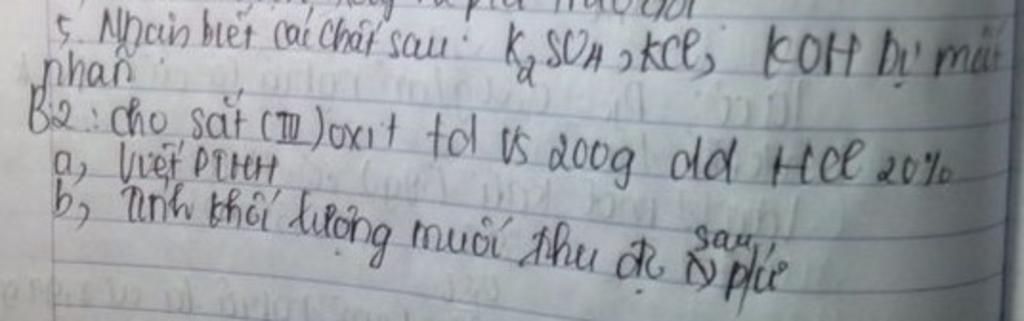 5. Nhận biết các chất sau: K2SO4, KCl, KOH bị mất
nhãn
B2: cho sắt (III) oxit td vs 200g dd HCl 20%
a, Viết PTHH
b, Tính khối lượng muối thu đc sau pứ